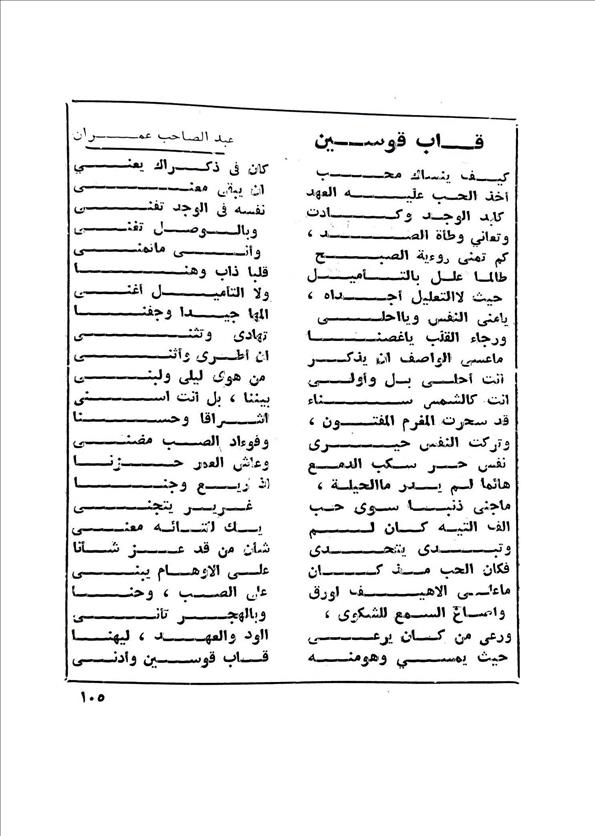 قــاب قوســـين
عبد الصاحب عمـــران
كيـف ينساك محـب كان في ذكـراك يعنـي
أخذ الحـب عليـه العهد ان يبقى معنـى
كابد الوجـد وكـادت نفسه في الوجد تفنـى
وتعاني وطأة الصـد ، وبالـوصل تغنـى
كم تمنى روءية الصبـح وأنـى ماتمنـى
طالمـا علـل بالتـأميـل قلبـا ذاب وهنـا
حيث لاالتعليل أجـداه ، ولا التأميـل أغنـى
يامنى النفس ويااحلـى المها جيـدا وجفنـا
ورجاء القلب ياغصنـا تهادى وتثنـى
ماعسى الواصف ان يذكـر ان أطـرى وأثنـى
أنت أحلـى بـل وأولـى من هوى ليلى ولبنـى
انت كالشمس سـناء بيننا ، بل أنت اسـنى
قد سحرت المغرم المفتـون ، اشراقا وحسـنا
وتركت النفس حيـرى وفوءاد الصـب مضنـى
نفس حـر سكـب الدمـع وعاش العمر حـزنـا
هائما لـم يـدر ماالحيلة ، اذ ريـع وجنـا
ماجنى ذنبـا سـوى حـب غـرير يتجنـى
الف التيه كـان لـم يـك لثنـائـه معنـى
وتبـدى يتحـدى شان من قد عـز شـأنا
فكان الحب مـذ كـان علـى الاوهـام يبنـى
ماعلـى الاهيـف اورق على الصب ، وحنـا
واصـاخ السمع للشكوى ، وبالهجـر تأنـى
ورعى من كـان يرعـى الود والعهـد ، ليهنـا
حيث يمسـي وهومنـه قـاب قوسـين وأدنـى
١٠٥